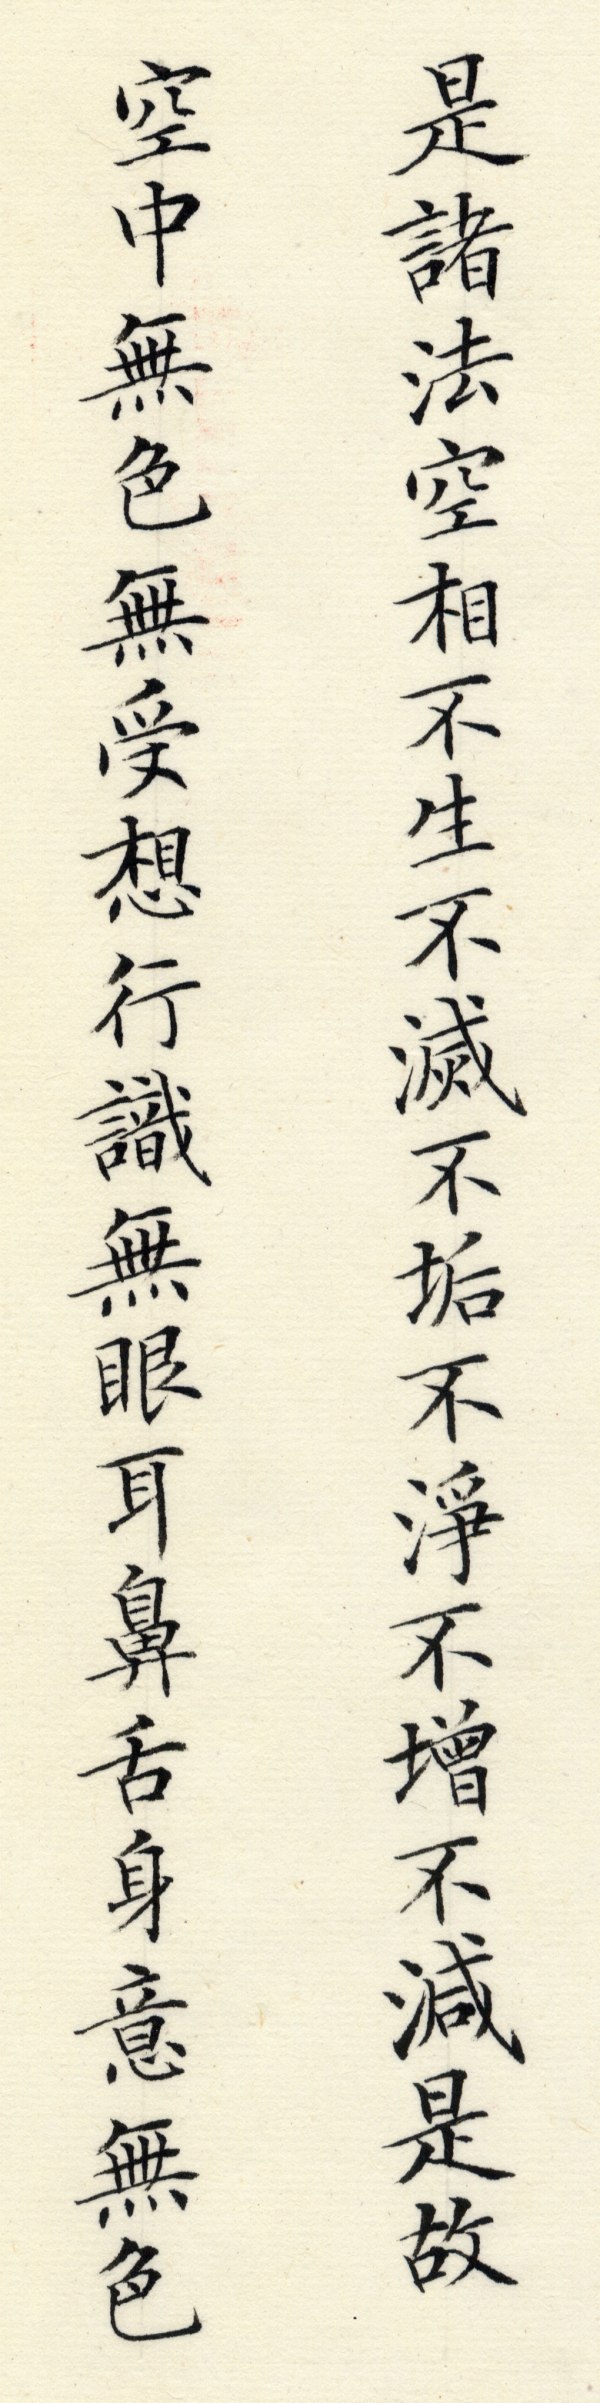 是諸法空相不生不滅不垢不淨不增不減是故
空中無色無受想行識無眼耳鼻舌身意無色